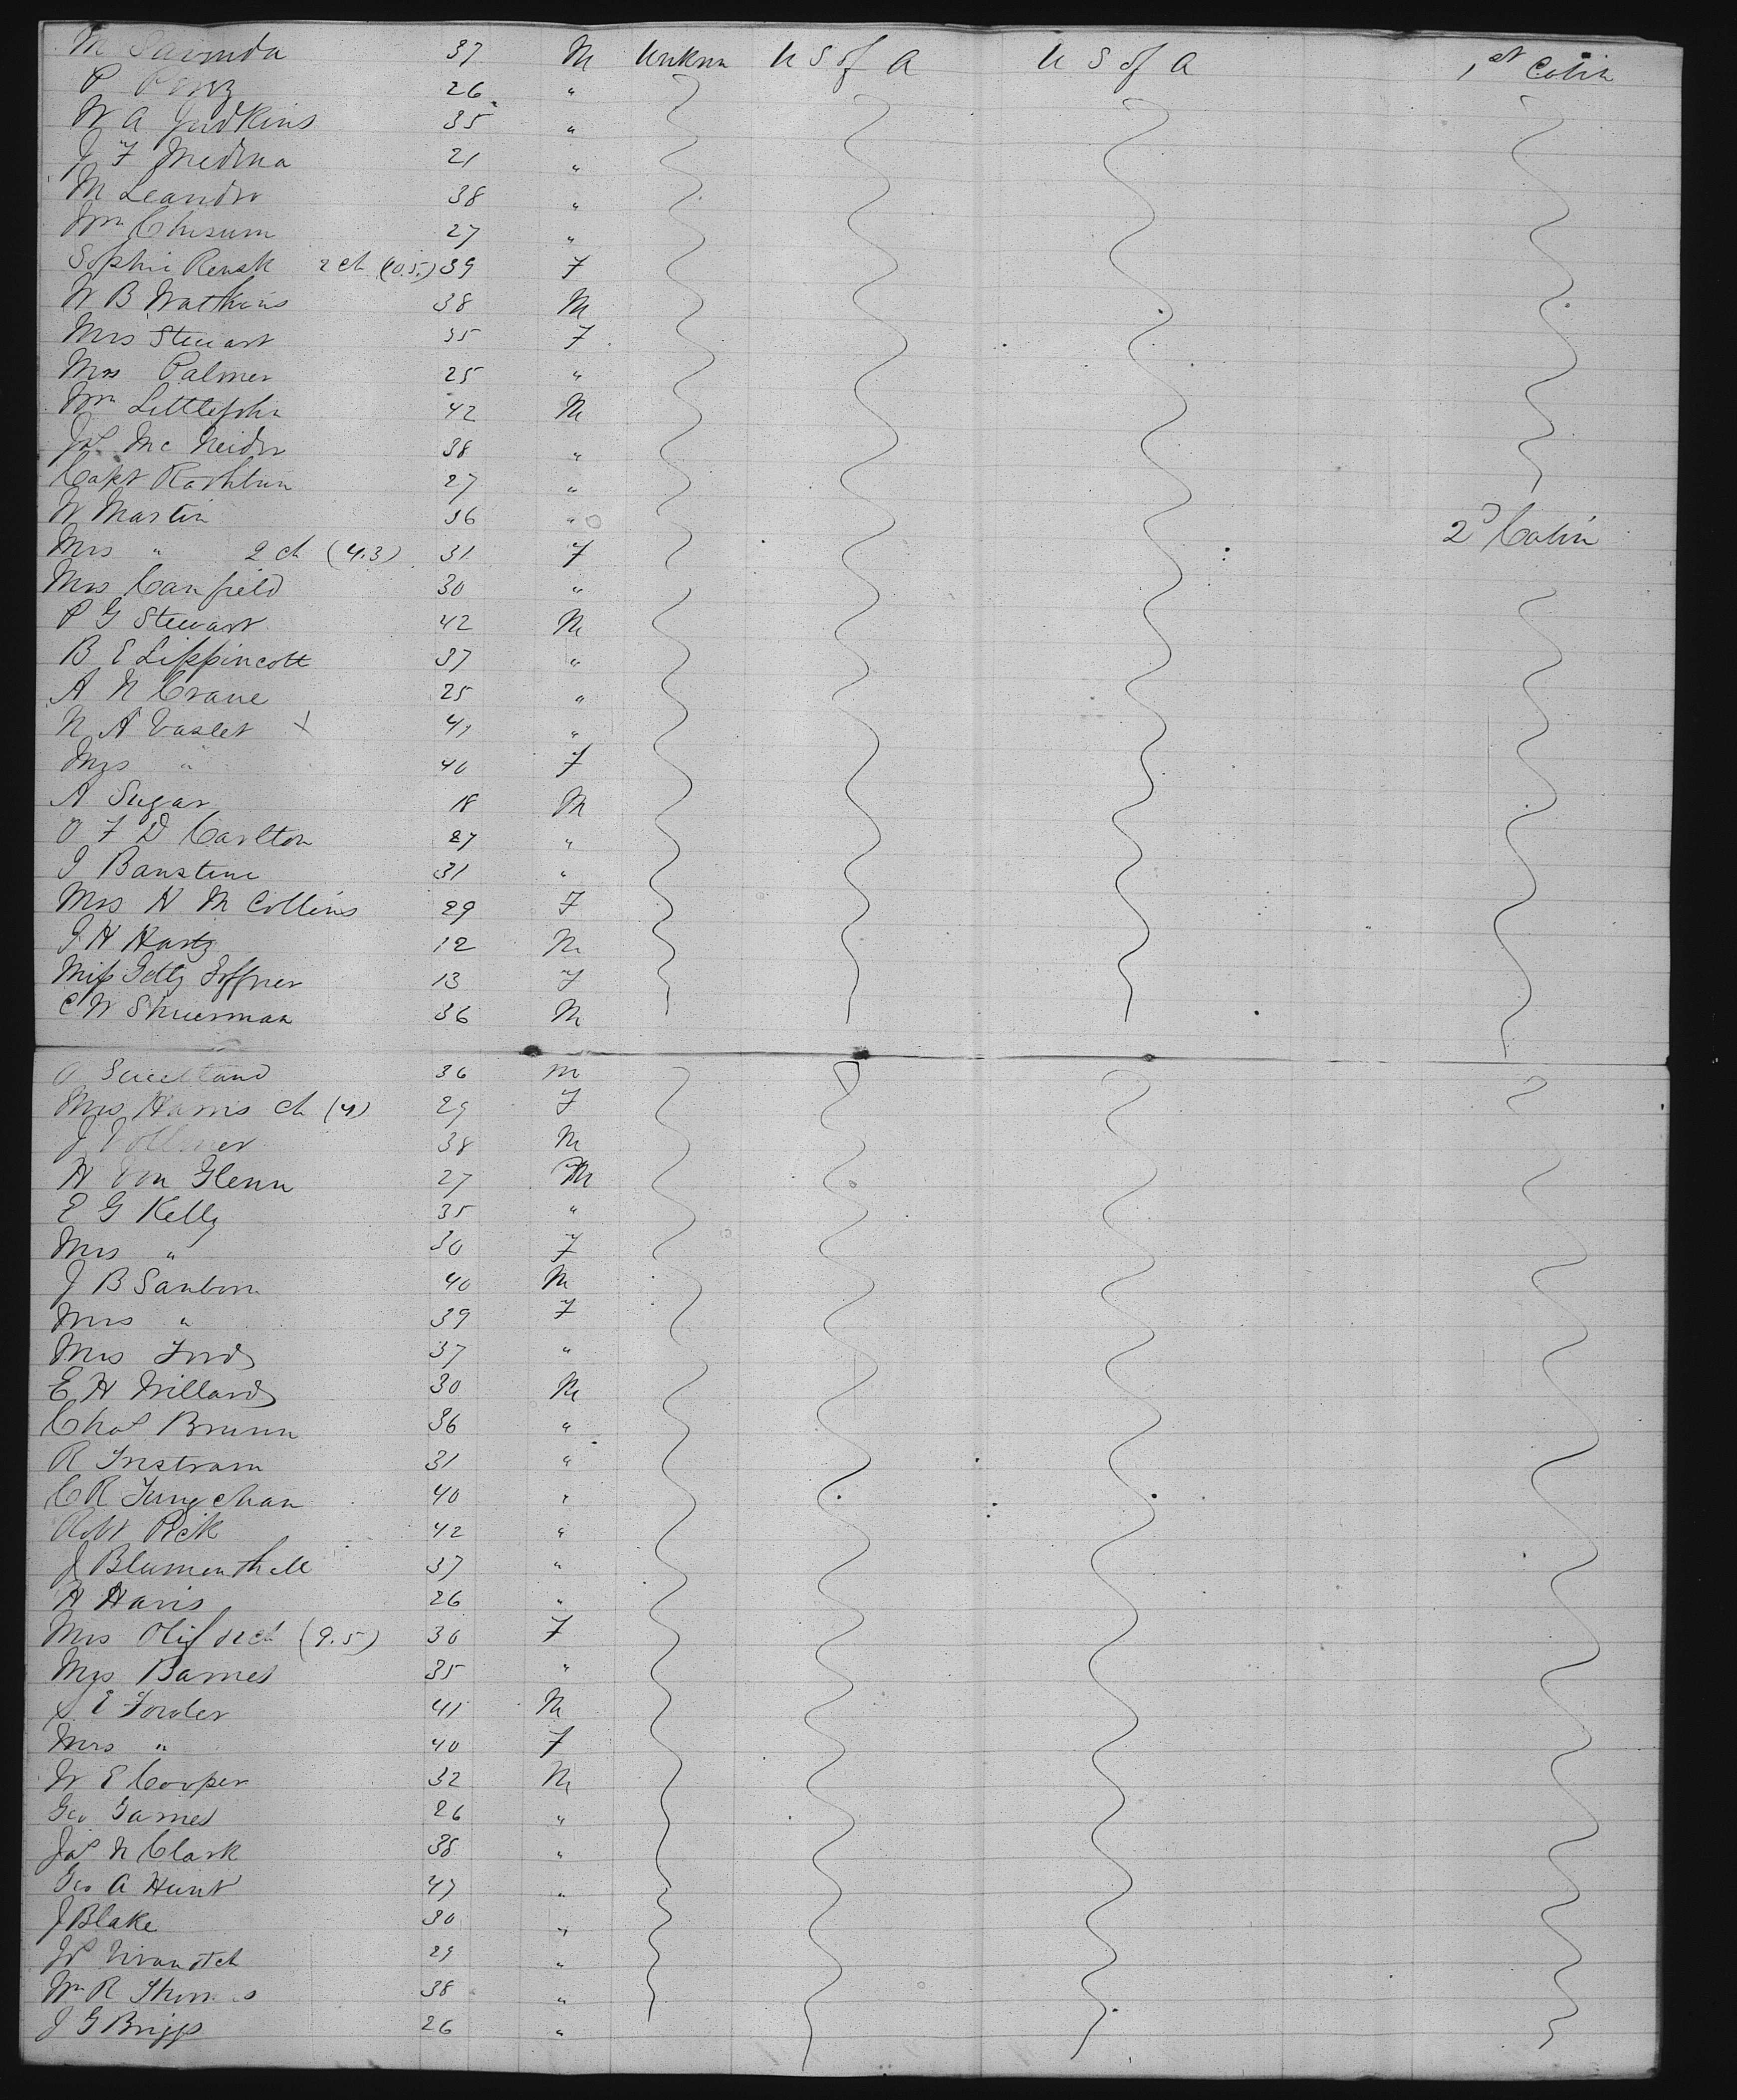 M 37 M Unknn U S of A U S of A 1st Cabin
P Perez 26 "
W A Judkins 35 "
J F Medina 21 "
M Leandro 38 "
Wm Chisum 27 "
Sophie Rensk 2 ch (10.5.) 39 F
W B Watkins 38 M
Mrs Stewart 35 F
Mrs Palmer 25 "
Wm Littlejohn 42 M
Js Mc Neidr 38 "
Capt Rathbun 27 "
W Martin 36 " 2D Cabin
Mrs " 2 ch (4.3) 31 F
Mrs Canfield 30 "
P G Stewart 42 M
B E Lippincott 37 "
A N Crane 25 "
N A Vaslet x 41 "
Mrs " 40 F
A Sugar 18 M
O F D Carlton 27 "
I Banstine 31 "
Mrs H M Collins 29 F
I H Hartz 12 M
Miss Getty Toffner 13 F
C W Shuerman 36 M
36 M
Mrs Harris ch (4) 29 F
J Vollmer 38 M
H Von Glenn 27 M
E G Kelly 35 "
Mrs " 30 F
J B Sanborn 40 M
Mrs " 39 F
Mrs Ford 37 "
E H Willard 30 M
Chas Brunn 36 "
R Tristram 31 "
C R Jungchan 40 "
Robt Pick 42 "
J Blumenthall 37 "
H Haris 26 "
Mrs 2 ch (9.5) 30 F
Mrs Barnes 35 "
S E Fowler 41 M
Mrs " 40 F
W E Cooper 32 M
Geo James 26 "
Js N Clark 38 "
Geo A Hunt 47 "
J Blake 30 "
29 "
Wm R Thomas 38 "
J G Briggs 26 "